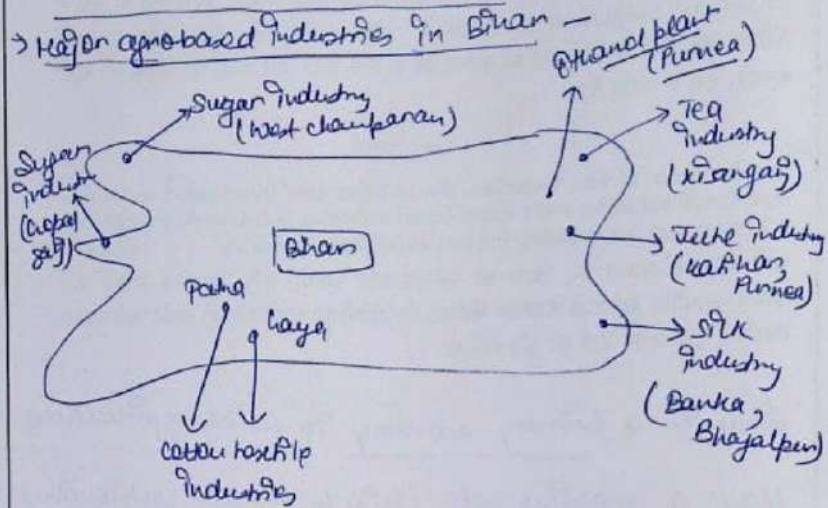 → Major agro-based industries in Bihar –
Ethanol plant
(Purnea)
Sugar industry
(West champaran)
Tea
industry
(Kisanganj)
Sugar
industry
(Gopal
ganj)
Bihar
Jute industry
(Katihar,
Purnea)
Patna
Gaya
Silk
industry
(Banka,
Bhagalpur)
Cotton textile
industries